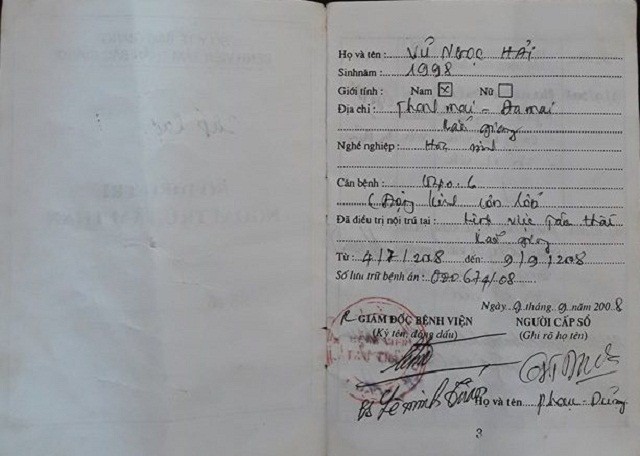 Họ và tên : VŨ NGỌC HẢI
Sinh năm : 1998
Giới tính : Nam ☒ Nữ ☐
Địa chỉ : - Đa mai
Bắc giang
Nghề nghiệp : Học sinh
Căn bệnh :
( Động kinh cơn lớn
Đã điều trị nội trú tại : Bệnh viện Tâm thần
Bắc giang
Từ : 4/7/2008 đến: 9/9/2008
Số lưu trữ bệnh án : 020674/08
Ngày 9 tháng 9 năm 2008
GIÁM ĐỐC BỆNH VIỆN NGƯỜI CẤP SỔ
(Ký tên, đóng dấu) (Ghi rõ họ tên)
Họ và tên Phạm Dũng
3